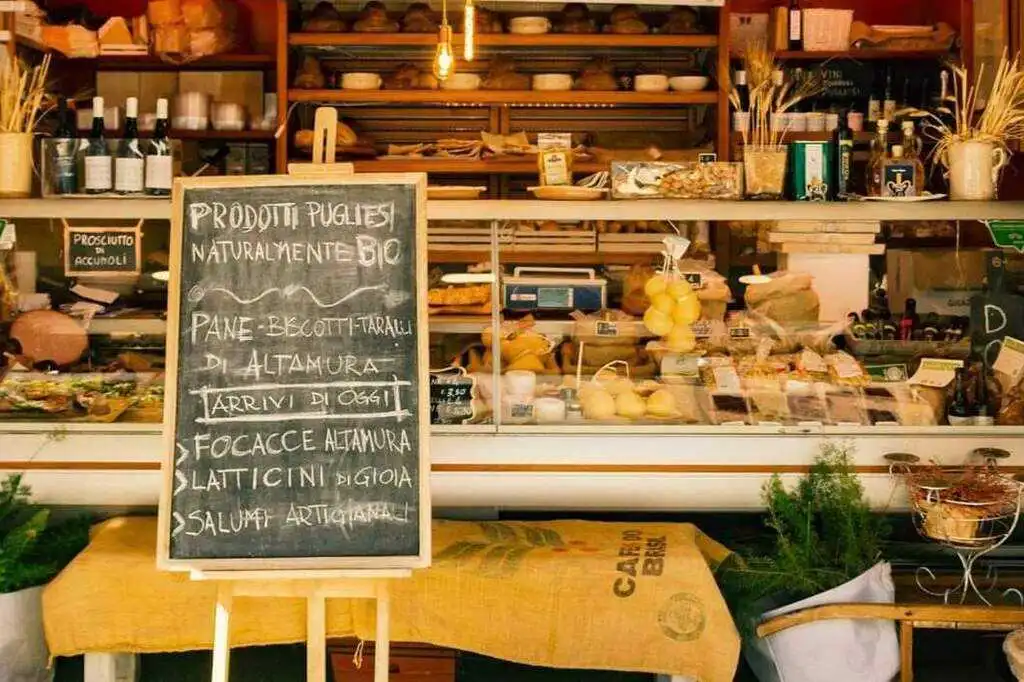 PRODOTTI PUGLIESI
NATURALMENTE BIO
PANE-BISCOTTI-TARALLI
DI ALTAMURA
ARRIVI DI OGGI
> FOCACCE ALTAMURA
> LATTICINI DI GIOIA
> SALUMI ARTIGIANALI
PROSCIUTTO
DI
ACCUMOLI
CAFE DO
BRASIL
D